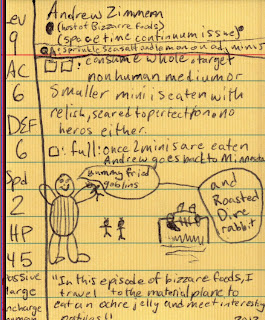 Andrew Zimmern
Lev
9
(host of Bizzare Foods)
(space time continuum issue)
: sprinkle sea salt and lemon on adj minis
AC
6
: consume whole, target
nonhuman medium or
Smaller mini is eaten with
relish, scared to
heros either.
DEF
6
: full: once 2 minis are eaten
Andrew goes back to Minnesota
Spd
2
yummy fried
goblins
and
Roasted
Dire
rabbit
HP
45
"In this episode of bizzare foods, I
travel to the material plane to
eat an ochre jelly and meet interesting
large